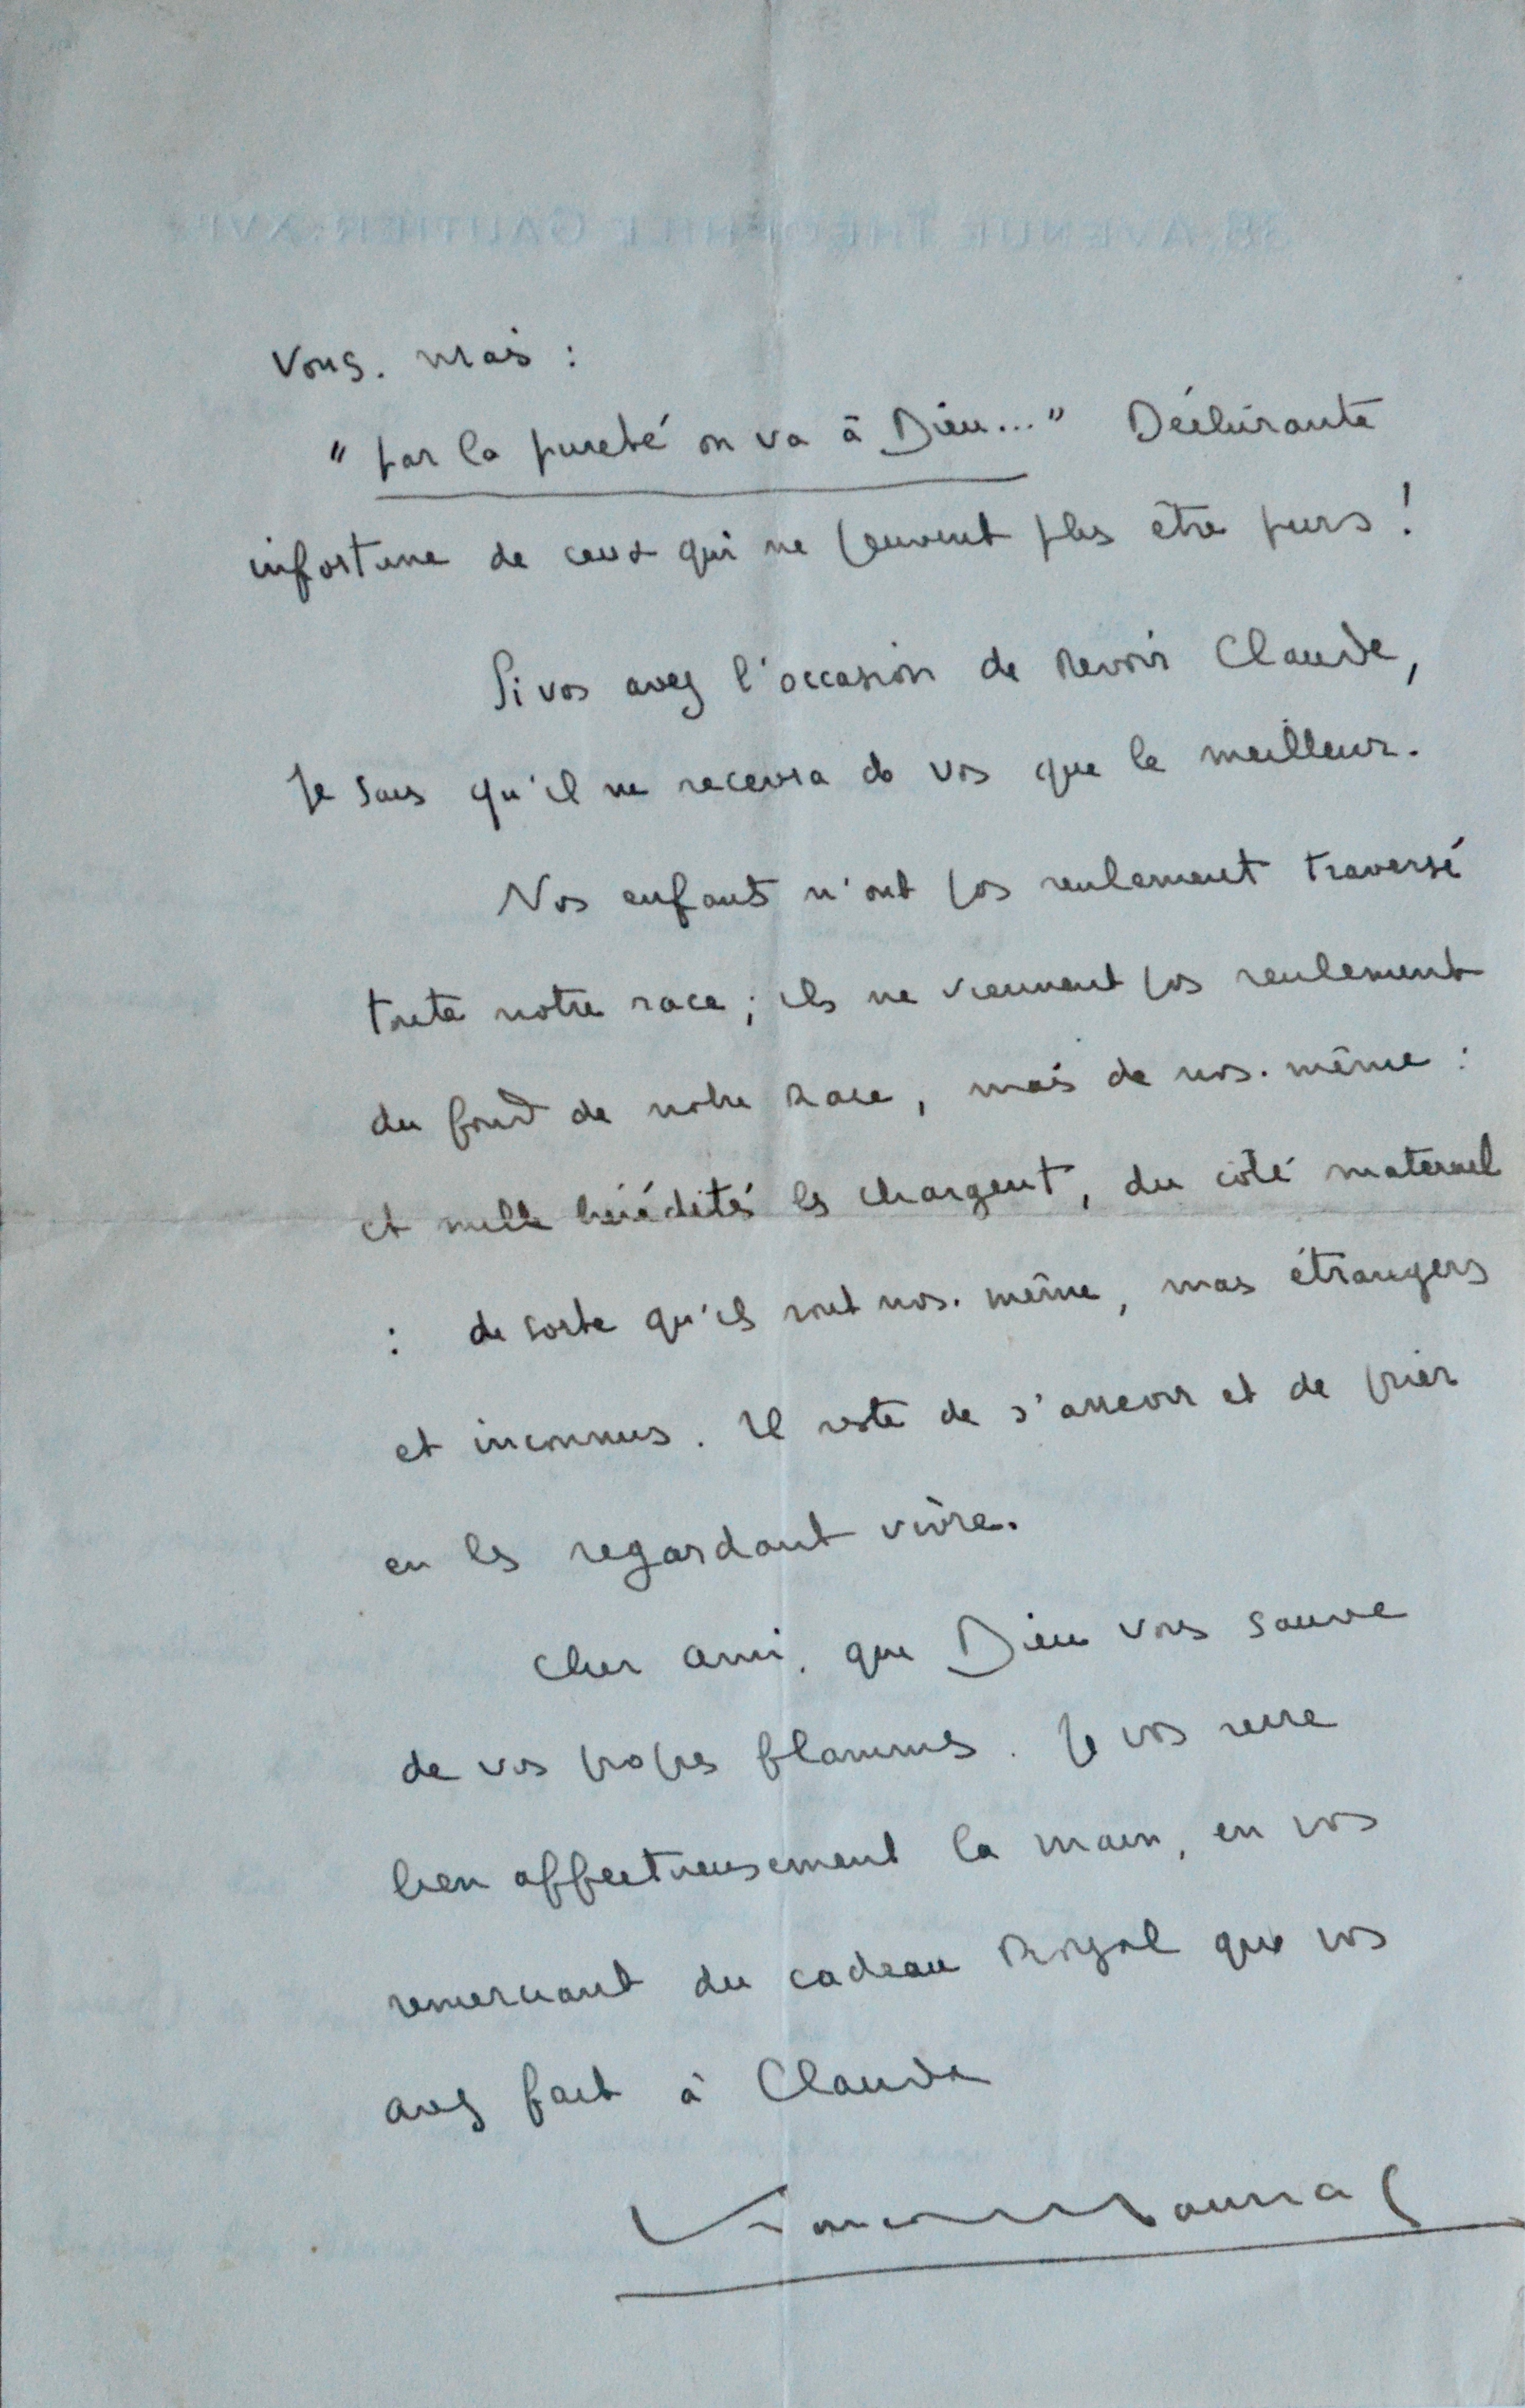 38, AVENUE THÉOPHILE GAUTIER. XVIe
Vous. mais :
" par la pureté on va à Dieu..." Déchirante
infortune de ceux qui ne peuvent plus être purs !
Si vos avez l'occasion de revoir Claude,
Je sais qu'il ne recevra de vos que le meilleur.
Nos enfants n'ont pas seulement traversé
toute notre race ; ils ne viennent pas seulement
du fond de notre Race, mais de nos. même :
et mille hérédités les chargent, du côté maternel
: de sorte qu'ils sont nos. même, mais étrangers
et inconnus. Il reste de s'asseoir et de prier
en les regardant vivre.
Cher ami, que Dieu vous sauve
de vos propres flammes. Je vos serre
bien affectueusement la main, en vos
remerciant du cadeau Royal que vos
avez fait à Claude
François Mauriac